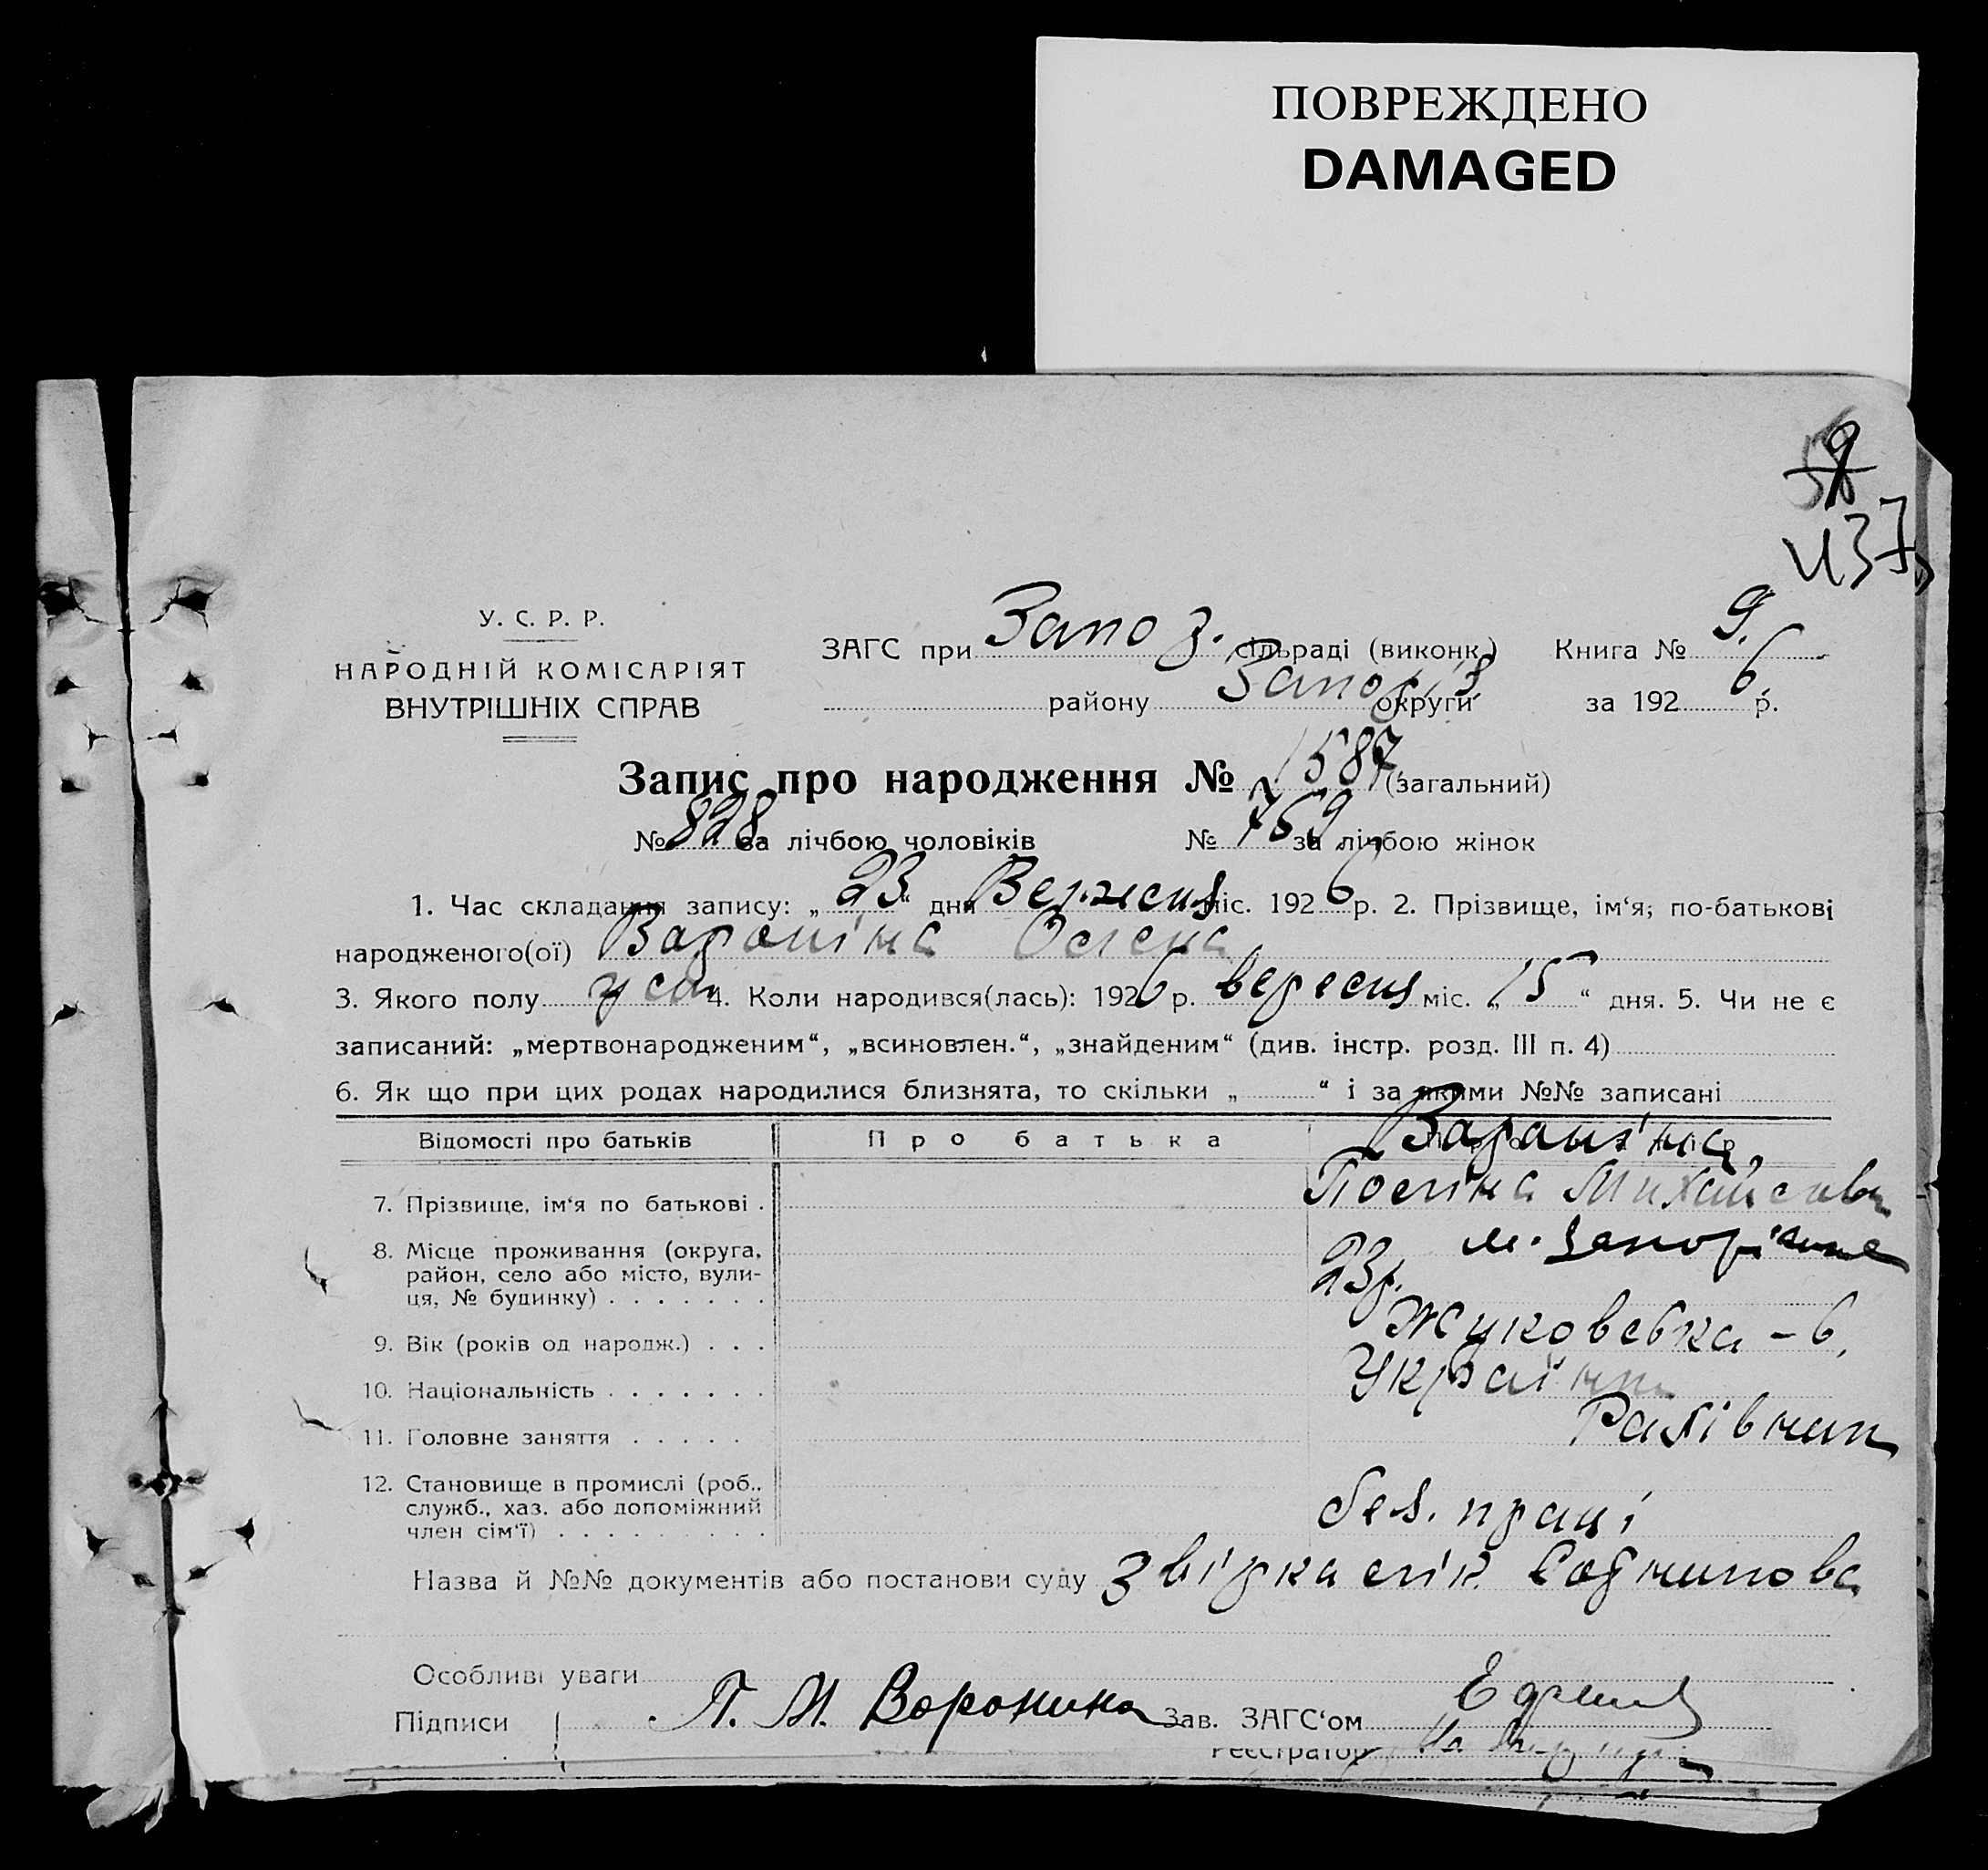 ПОВРЕЖДЕНО
DAMAGED
9
437
У. С. Р. Р.
НАРОДНІЙ КОМІСАРІЯТ
ВНУТРІШНІХ СПРАВ
ЗАГС при Запоз. сільраді (виконк.) Книга № 9.
району Запоріз округи за 1926 р.
Запис про народження № 1587 (загальний)
№ 828 за лічбою чоловіків № 759 за лічбою жінок
1. Час складання запису: „23“ дня Вересня міс. 1926 р. 2. Прізвище, ім‘я, по-батькові
народженого(ої)
3. Якого полу 4. Коли народився(лась): 1926 р. вересня міс. „15“ дня. 5. Чи не є
записаний: „мертвонародженим“, „всиновлен.“, „знайденим“ (див. інстр. розд. III п. 4)
6. Як що при цих родах народилися близнята, то скільки „ “ і за якими №№ записані
Відомості про батьків Про батька
7. Прізвище, ім‘я по батькові .
м. Запоріжже
8. Місце проживання (округа,
район, село або місто, вули-
ця, № будинку) . . . . . . .
23р.
Жуковська – 6,
9. Вік (років од народж.) . . .
10. Національність . . . . . . . Україн
11. Головне заняття . . . . .
12. Становище в промислі (роб..
служб., хаз. або допоміжний
член сім‘ї) . . . . . . . . .
без. праці
Назва й №№ документів або постанови суду
Особливі уваги
Підписи П. М. Воронина Зав. ЗАГС‘ом
Реєстратор